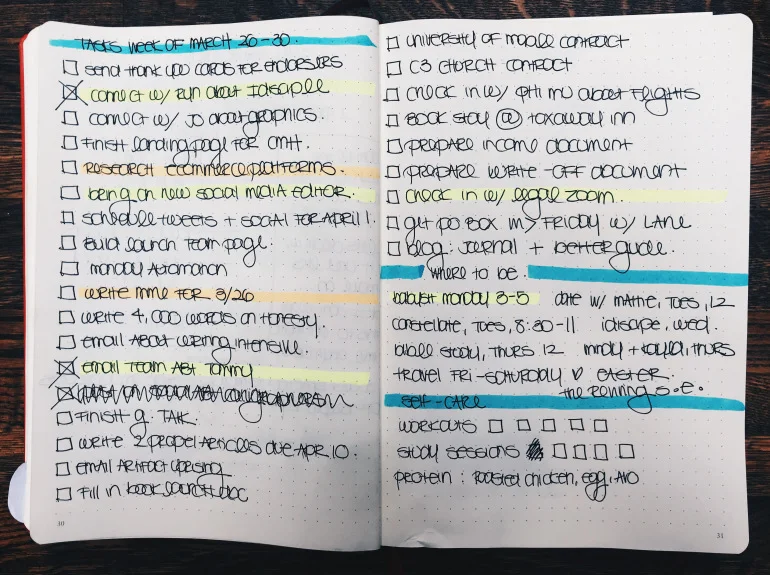 TASKS WEEK OF MARCH 26-30.
send thank you cards for endorsers
connect w/ run about
connect w/ JD about graphics.
Finish landing page for OMH.
RESEARCH ECOMMERCE platforms.
bring on new social media editor.
schedule tweets + social FOR APRIL 1.
Build launch team page.
monday
write mmc for 3/26
write 4,000 words on honesty.
email about writing intensive.
email team abt Tommy
Finish g. TALK.
write 2 propel articles due APR 10.
EMAIL ARTIFACT uprising
Fill in book launch doc
30
UNIVERSITY OF mobile contract
C3 CHURCH contract
CHECK IN W/ phi mu about flights
BOOK stay @ toxaway inn
prepare income document
prepare write-off document
check in w/ legal zoom.
get po Box in > FRIDAY w/ LANE
blog: journal + better guide.
WHERE TO be.
monday 3-5 date w/ TUES, 12
constellate, TUES, 8:30-11 wed.
bible study, THURS 12 THURS
travel FRI-SATURDAY ♡ EASTER.
the running s.e.
SELF-CARE
WORKOUTS
STUDY SESSIONS
protein: Roasted chicken, egg, AVO
31